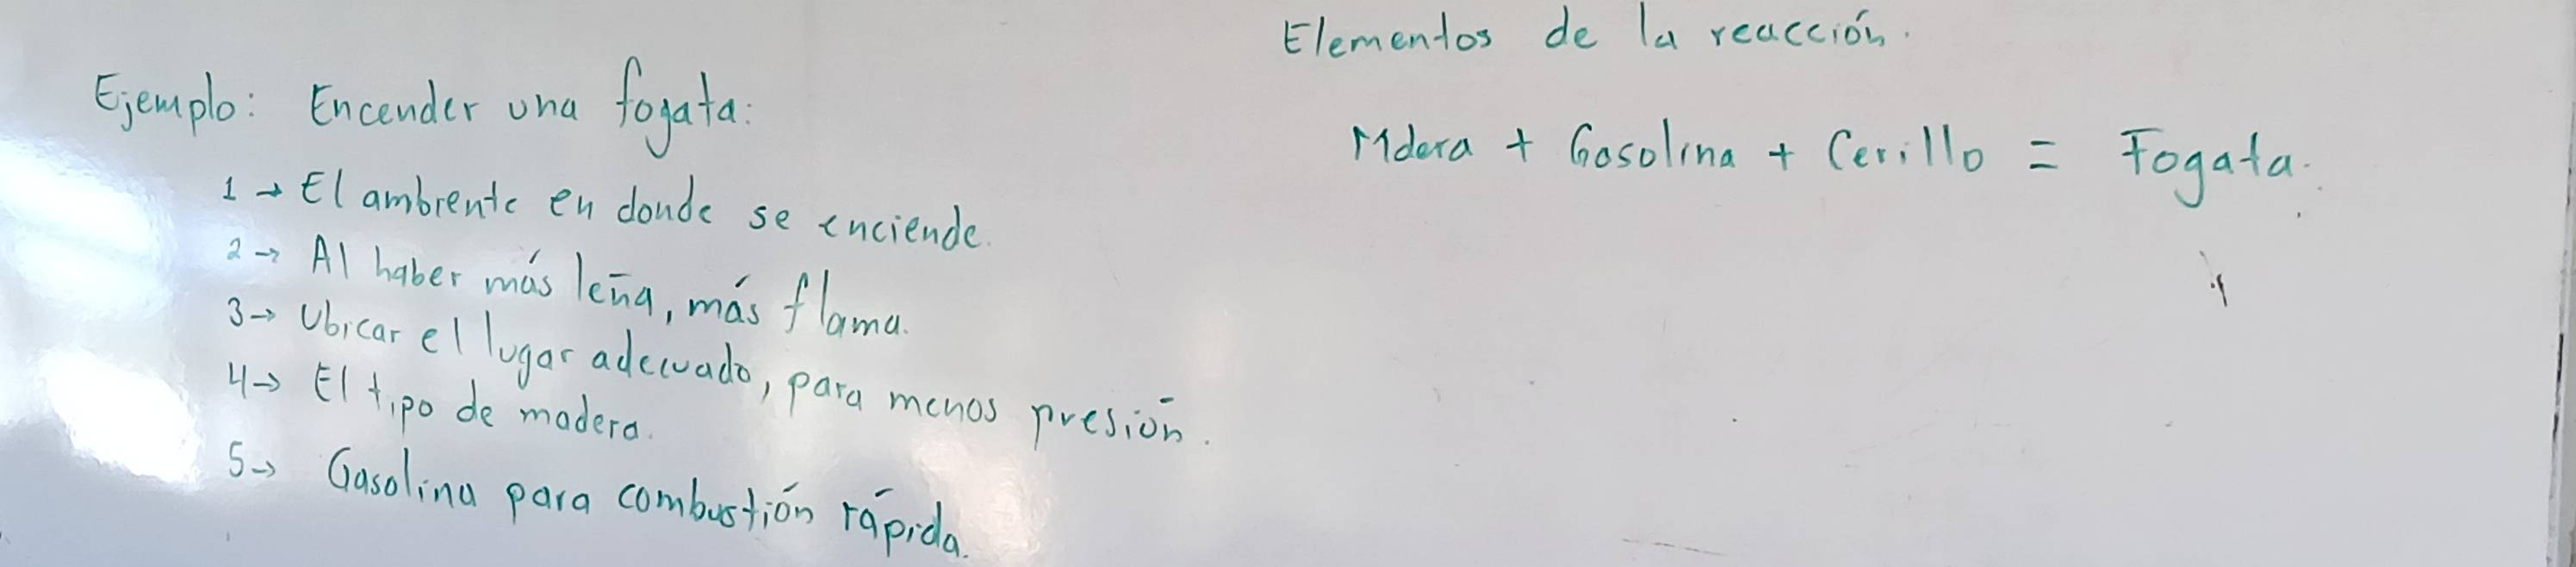 Ejemplo: Encender una fogata:
1 → El ambiente en donde se enciende.
2 → Al haber más leña, más flama.
3 → Ubicar el lugar adecuado, para menos presión.
4 → El tipo de madera.
5 → Gasolina para combustión rápida.
Elementos de la reacción.
Mdera + Gasolina + Cerillo = Fogata.